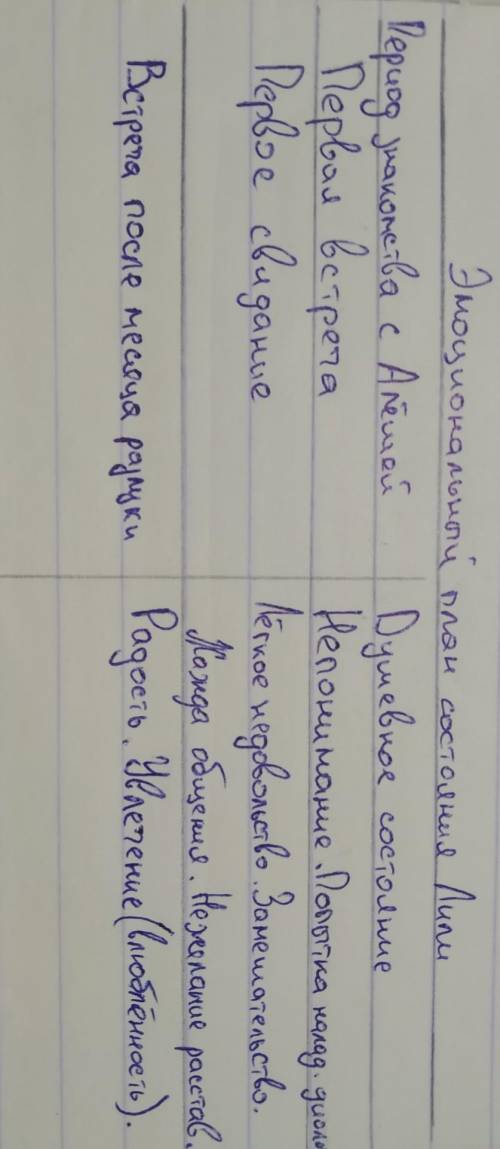 Эмоциональный план состояния Лили
Период знакомства с Алёшей Душевное состояние
Первая встреча Непонимание. Попытка налад. диало
Первое свидание Лёгкое недовольство. Замешательство.
Жажда общения. Нежелание расстав.
Встреча после месяца разлуки Радость. Увлечение (влюблённость).